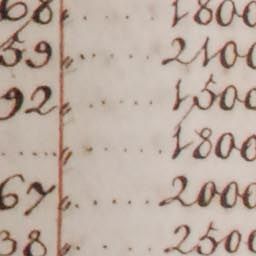 68 " ..... 1800
59 " ..... 2100
92 " ..... 1500
.... " ..... 1800
67 " ..... 2000
38 " ..... 2500